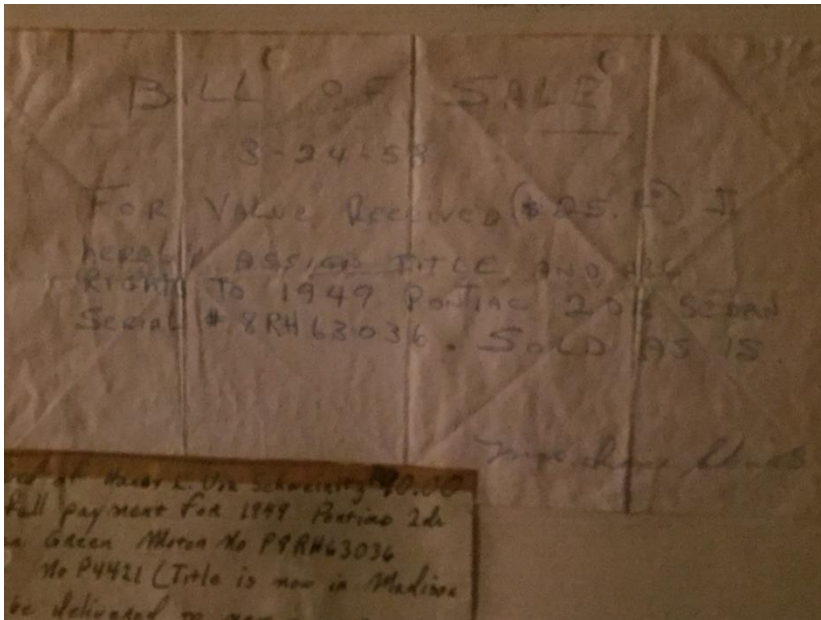 BILL OF SALE
3-24-58
FOR VALUE RECEIVED ($25.00) I
HEREBY ASSIGN TITLE AND ALL
RIGHTS TO 1949 PONTIAC 2DR SEDAN
SERIAL # 8RH63036. SOLD AS IS
of L. Von Schweinitz 90.00
full payment for 1949 Pontiac 2dr
Green Motor No P8RH63036
No P4421 (Title is now in Madison
be delivered